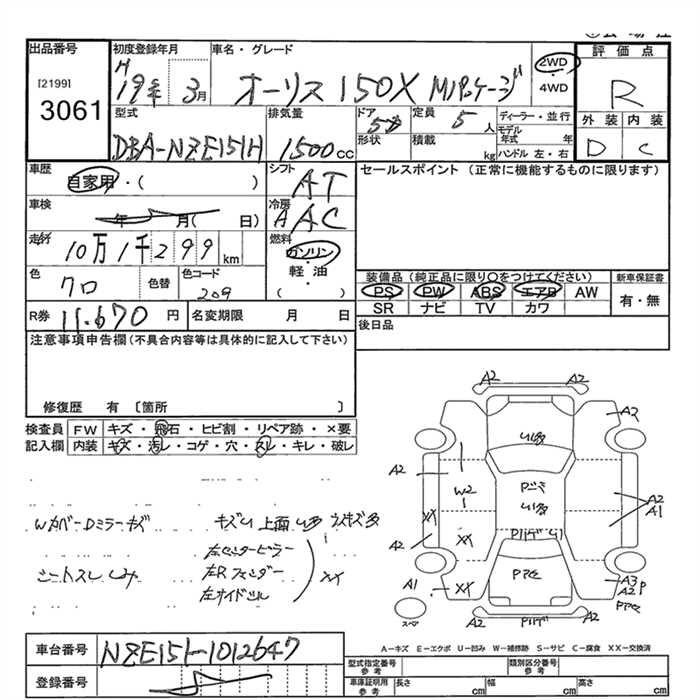 出品番号
[2199]
3061
初度登録年月
H
19年 3月
車名・グレード
オーリス 150X Mパッケージ
2WD
4WD
評価点
R
外装 内装
D C
型式
DBA-NZE151H
排気量
1500cc
ドア
5
形状
定員
5人
積載
kg
ディーラー・並行
モデル年式 年
ハンドル 左・右
車歴
自家用・( )
シフト
AT
セールスポイント (正常に機能するものに限ります)
車検
年 月( 日)
冷房
AAC
走行
10万1千299km
燃料
ガソリン
軽・油
( )
色
クロ
色替
色コード
209
装備品(純正品に限り〇をつけてください)
PS PW ABS エアB AW
SR ナビ TV カワ
新車保証書
有・無
R券
11.670円
名変期限 月 日
後日品
注意事項申告欄(不具合内容等は具体的に記入して下さい)
修復歴 有 〔箇所 〕
検査員記入欄
FW キズ・飛石・ヒビ割・リペア跡・×要
内装 キズ・汚レ・コゲ・穴・スレ・キレ・破レ
Wカバー Dミラーキズ
シートスレ シミ
左センターピラー
左Rフェンダー
左サイドシル
XX
A2
A2
A2
A2
W2
XX
A2
XX
A1
XX
スペア
A2
A1
A3
A2
車台番号
NZE151-1012647
登録番号
A-キズ E-エクボ U-凹み W-補修跡 S-サビ C-腐食 XX-交換済
型式指定番号
参考
類別区分番号
参考
車庫証明用
参考
長さ cm
幅 cm
高さ cm